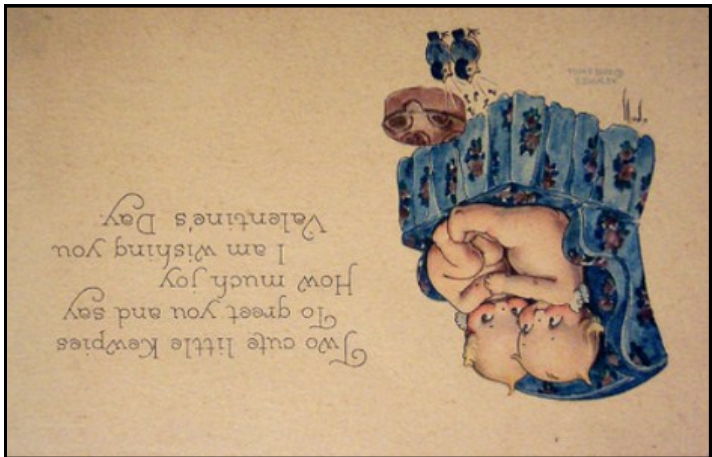 Two cute little Kewpies
To greet you and say
How much joy
I am wishing you
Valentine's Day.